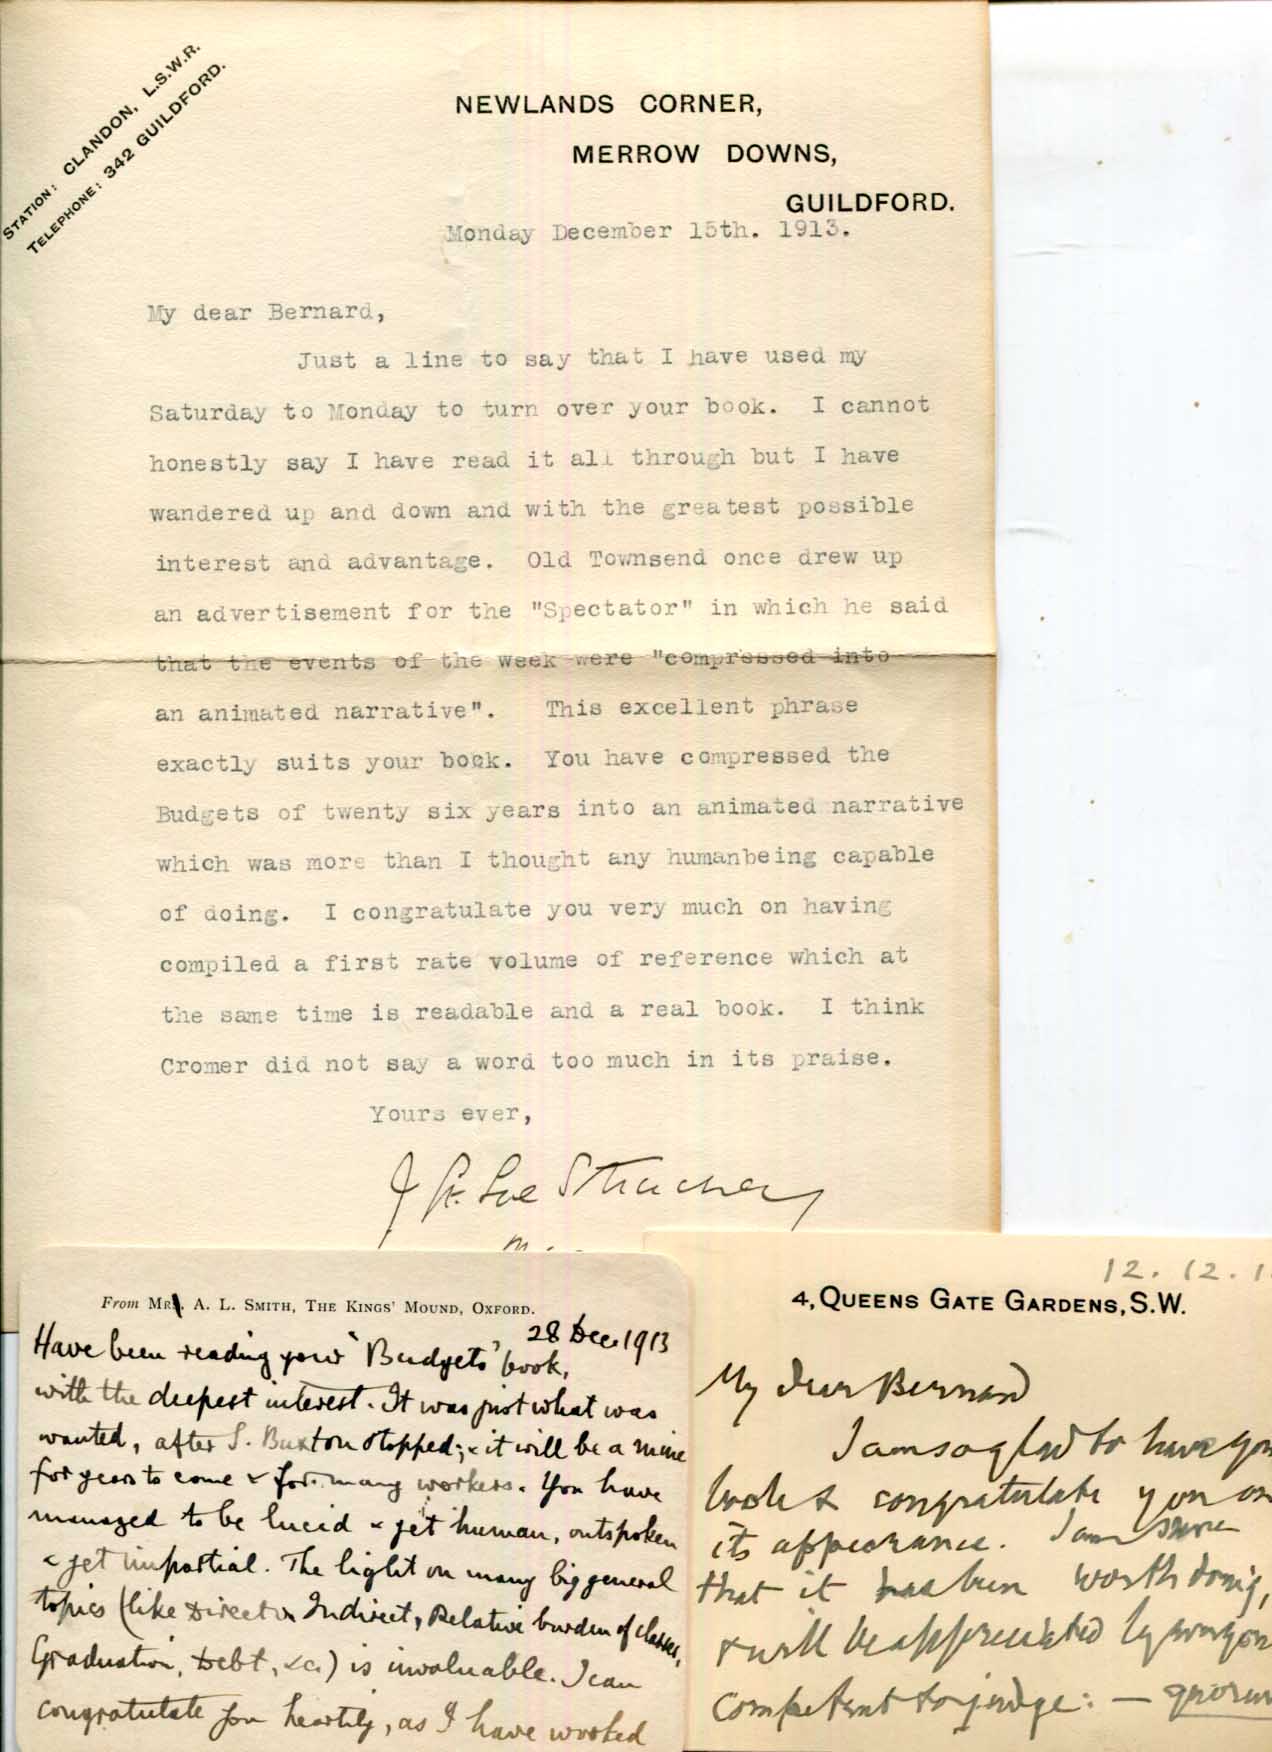 STATION: CLANDON, L.S.W.R.
TELEPHONE: 342 GUILDFORD.
NEWLANDS CORNER,
MERROW DOWNS,
GUILDFORD.
Monday December 15th. 1913.
My dear Bernard,
Just a line to say that I have used my
Saturday to Monday to turn over your book. I cannot
honestly say I have read it all through but I have
wandered up and down and with the greatest possible
interest and advantage. Old Townsend once drew up
an advertisement for the "Spectator" in which he said
that the events of the week were "compressed into
an animated narrative". This excellent phrase
exactly suits your book. You have compressed the
Budgets of twenty six years into an animated narrative
which was more than I thought any humanbeing capable
of doing. I congratulate you very much on having
compiled a first rate volume of reference which at
the same time is readable and a real book. I think
Cromer did not say a word too much in its praise.
Yours ever,
J St. Loe Strachey
From MR. A. L. SMITH, THE KINGS' MOUND, OXFORD.
28 Dec. 1913
Have been reading your 'Budgets' book,
with the deepest interest. It was just what was
wanted, after S. Buxton stopped; & it will be a mine
for years to come & for many workers. You have
managed to be lucid & yet human, outspoken
& yet impartial. The light on many big general
topics (like Direct v Indirect, Relative burden of classes,
Graduation, Debt, &c.) is invaluable. I can
congratulate you heartily, as I have worked
12. 12. 1
4, QUEENS GATE GARDENS, S.W.
My dear Bernard
I am so glad to have you
book & congratulate you on
its appearance. I am sure
that it has been worth doing,
& will be appreciated by
competent to judge: — quorum